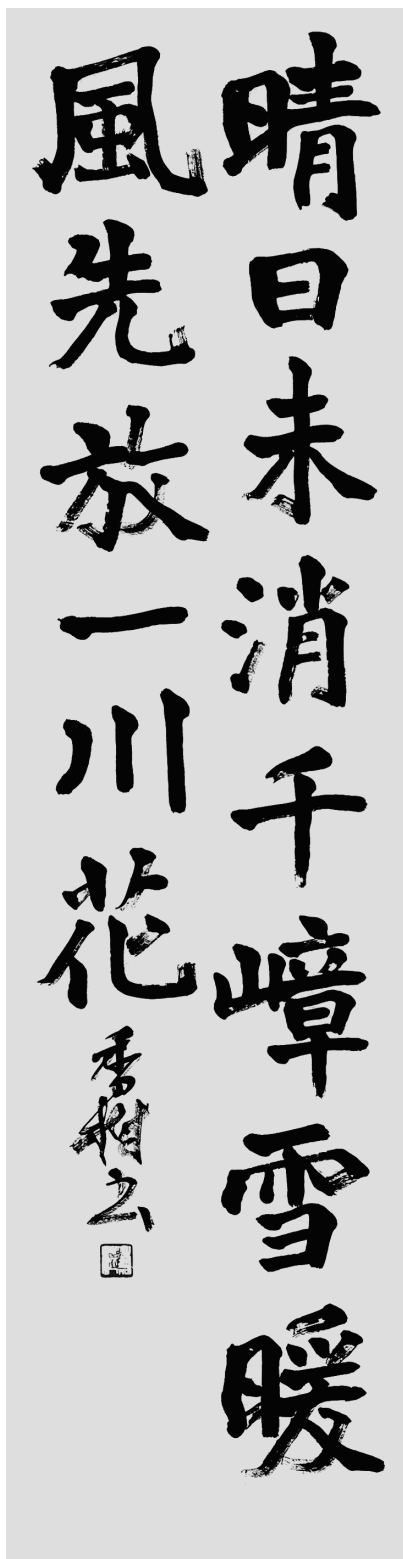 晴日未消千嶂雪暖
風先放一川花